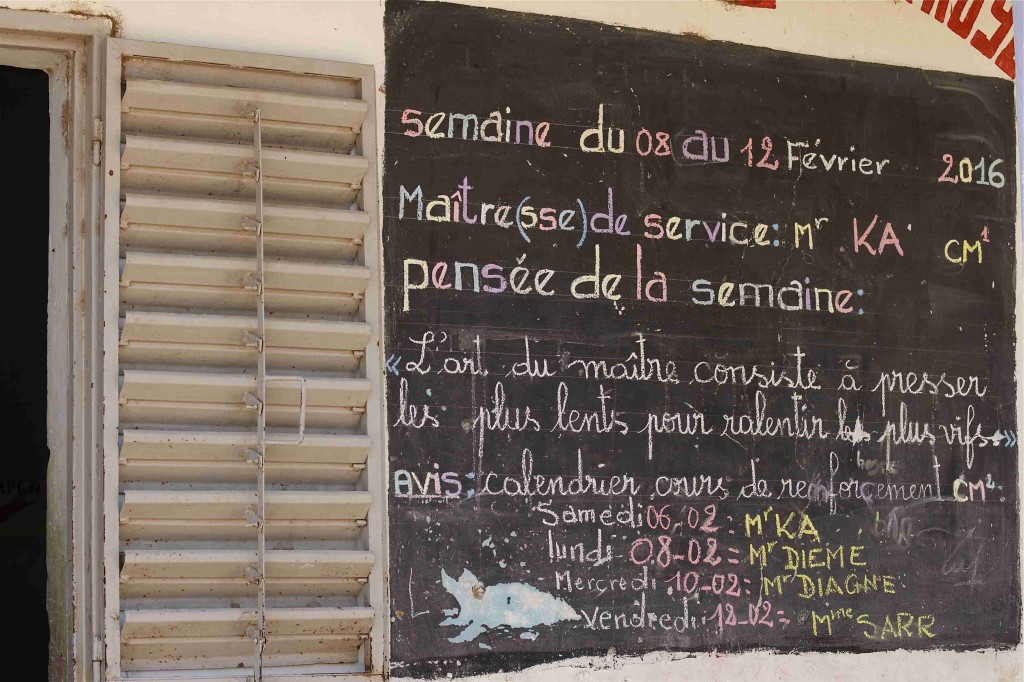 semaine du 08 au 12 Février 2016
Maître(sse) de service: Mr KA CM1
pensée de la semaine:
« L'art du maître consiste à presser
les plus lents pour ralentir les plus vifs. »
AVIS: calendrier cours de renforcement CM2:
Samedi 06-02: Mr KA
lundi 08-02= Mr DIEME
Mercredi 10-02: Mr DIAGNE
Vendredi: 12-02= Mme SARR